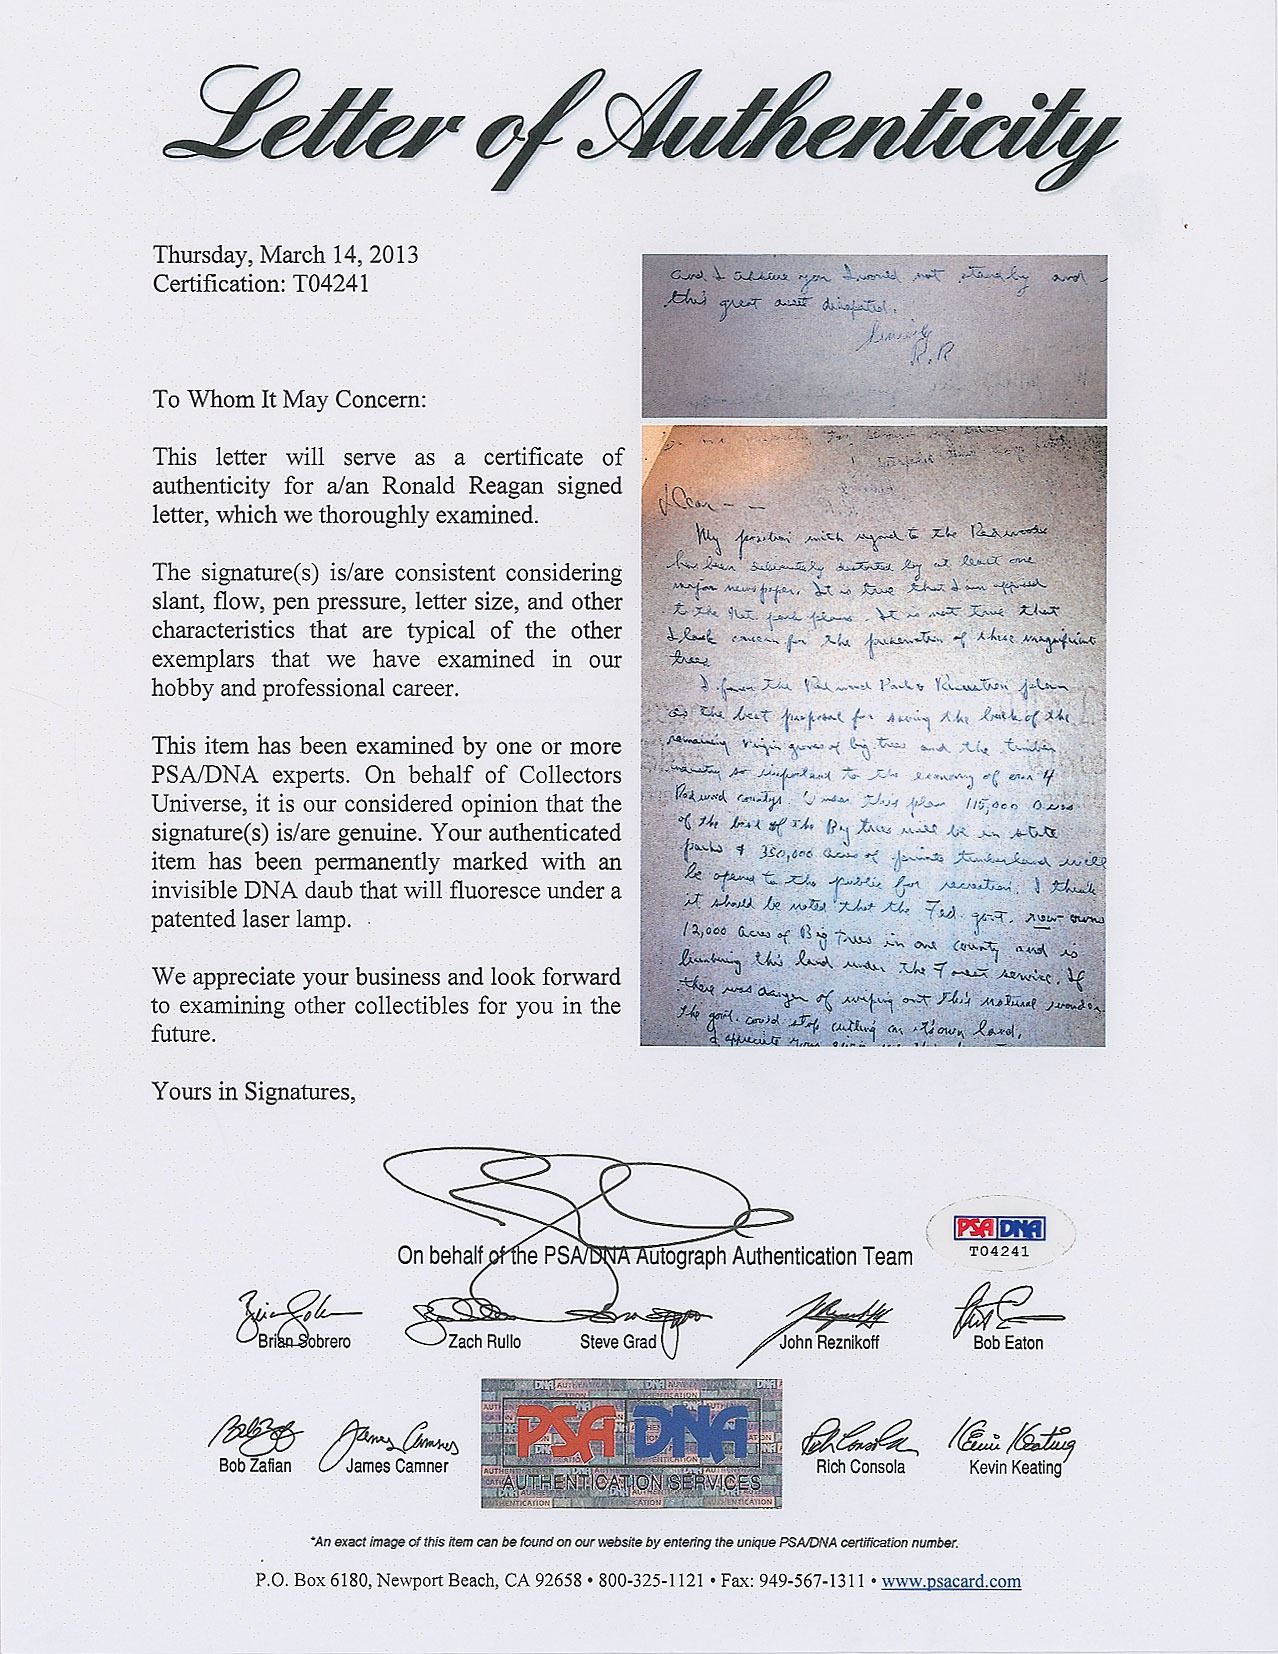 Letter of Authenticity
Thursday, March 14, 2013
Certification: T04241
To Whom It May Concern:
This letter will serve as a certificate of
authenticity for a/an Ronald Reagan signed
letter, which we thoroughly examined.
The signature(s) is/are consistent considering
slant, flow, pen pressure, letter size, and other
characteristics that are typical of the other
exemplars that we have examined in our
hobby and professional career.
This item has been examined by one or more
PSA/DNA experts. On behalf of Collectors
Universe, it is our considered opinion that the
signature(s) is/are genuine. Your authenticated
item has been permanently marked with an
invisible DNA daub that will fluoresce under a
patented laser lamp.
We appreciate your business and look forward
to examining other collectibles for you in the
future.
Yours in Signatures,
and I assure you I would not stand by and
this great asset dissipated.
Sincerely
R.R
Dear - -
My position with regard to the Redwoods
has been deliberately distorted by at least one
major newspaper. It is true that I am opposed
to the Nat. park plans. It is not true that
I lack concern for the preservation of these magnificent
trees
I favor the Redwood Park & Recreation plan
as the best proposal for saving the bulk of the
remaining virgin groves of big trees and the timber
industry so important to the economy of our 4
Redwood countys. Under this plan 115,000 acres
of the best of the Big trees will be in state
parks & 350,000 acres of private timberland will
be opened to the public for recreation. I think
it should be noted that the Fed. govt. now owns
12,000 acres of Big Trees in one county and is
lumbering this land under the Forest service. If
there was danger of wiping out this natural wonder
the govt. could stop cutting on it's own land.
I appreciate your
On behalf of the PSA/DNA Autograph Authentication Team
PSA DNA
T04241
Brian Sobrero
Zach Rullo
Steve Grad
John Reznikoff
Bob Eaton
Bob Zafian
James Camner
PSA DNA
AUTHENTICATION SERVICES
Rich Consola
Kevin Keating
*An exact image of this item can be found on our website by entering the unique PSA/DNA certification number.
P.O. Box 6180, Newport Beach, CA 92658 • 800-325-1121 • Fax: 949-567-1311 • www.psacard.com